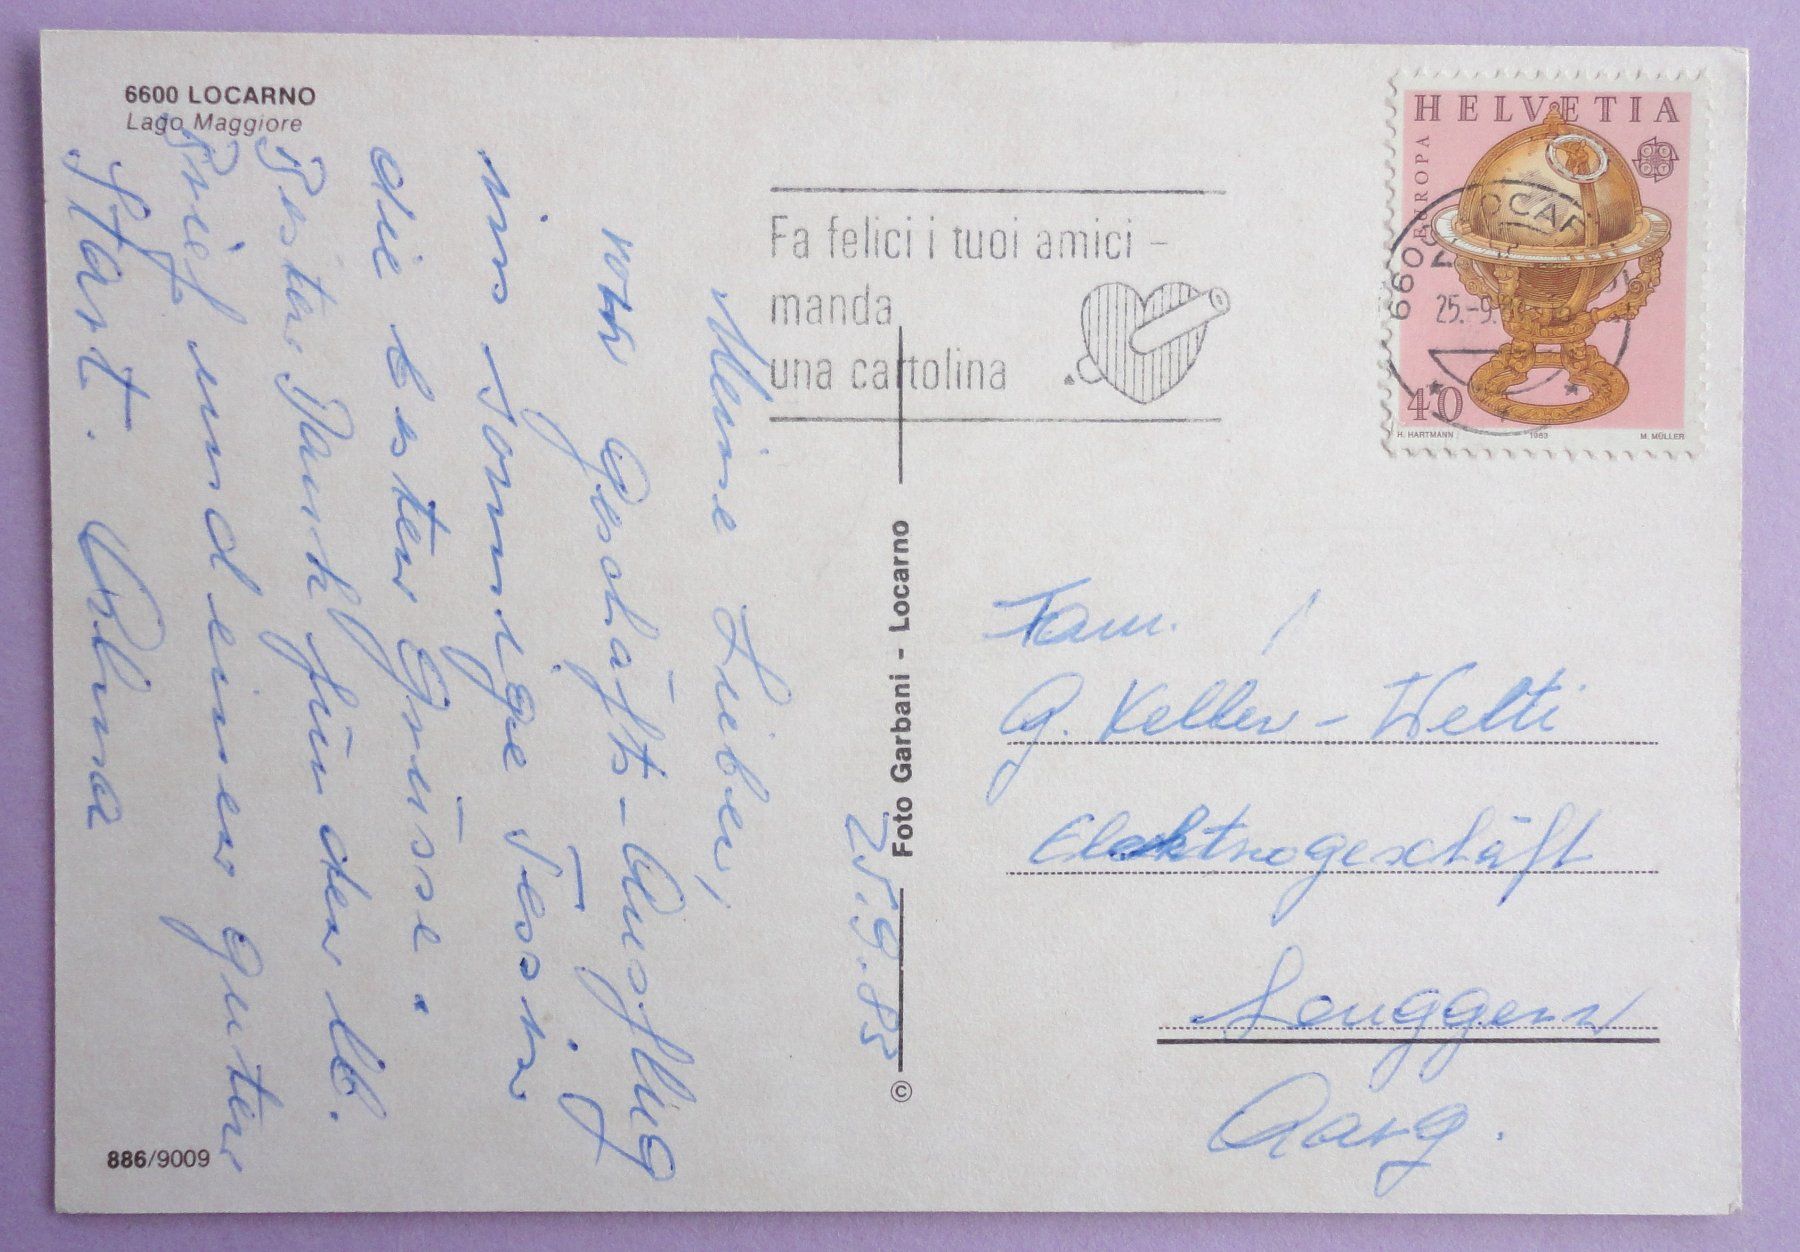 6600 LOCARNO
Lago Maggiore
Meine Lieben,
vom Geschäfts-Ausflug
ins sonnige Tessin
die besten Grüsse.
Besten Dank für den lb.
Brief und einen guten
Start. Albina
25.9.85
Fa felici i tuoi amici -
manda
una cartolina
HELVETIA
EUROPA
6600 LOCARNO
25.-9.
40
H. HARTMANN 1983 M. MÜLLER
Foto Garbani - Locarno
©
Fam.
G. Keller - Welti
Elektrogeschäft
Leuggern
Aarg.
886/9009